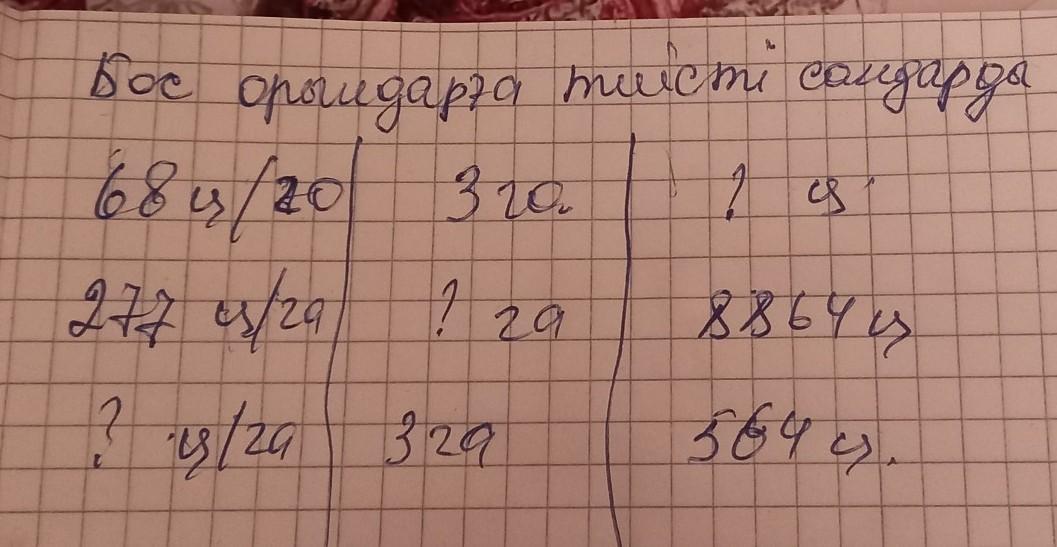 Бос орындарға тиісті сандарды
68 ц/га 3 га ? ц
277 ц/га ? га 8864 ц
? ц/га 3 га 564 ц.